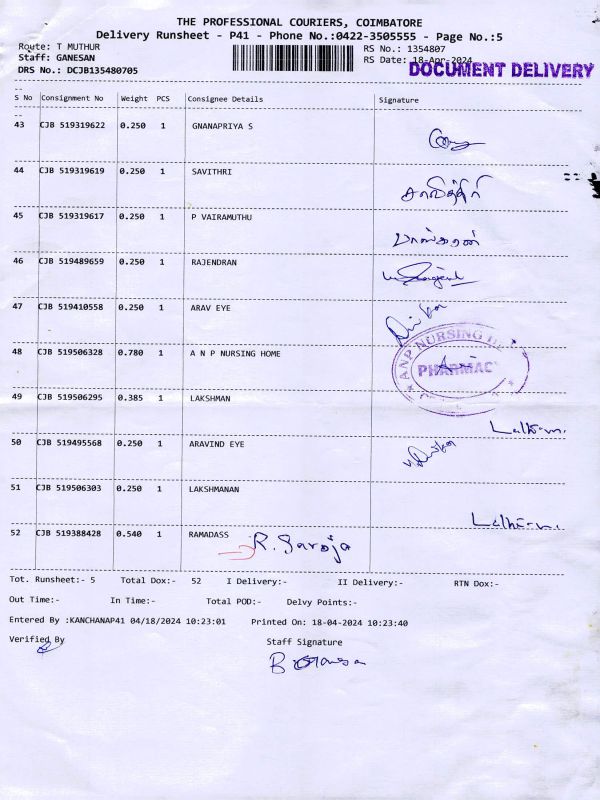 THE PROFESSIONAL COURIERS, COIMBATORE
Delivery Runsheet - P41 - Phone No.:0422-3505555 - Page No.:5
Route: T MUTHUR RS No.: 1354807
Staff: GANESAN RS Date: 18-Apr-2024
DRS No.: DCJB135480705 DOCUMENT DELIVERY
S No Consignment No Weight PCS Consignee Details Signature
43 CJB 519319622 0.250 1 GNANAPRIYA S
44 CJB 519319619 0.250 1 SAVITHRI
சாவித்திரி
45 CJB 519319617 0.250 1 P VAIRAMUTHU
பாஸ்கரன்
46 CJB 519489659 0.250 1 RAJENDRAN
47 CJB 519410558 0.250 1 ARAV EYE
ANP NURSING
48 CJB 519506328 0.780 1 A N P NURSING HOME
PHARMAC
49 CJB 519506295 0.385 1 LAKSHMAN
50 CJB 519495568 0.250 1 ARAVIND EYE
51 CJB 519506303 0.250 1 LAKSHMANAN
52 CJB 519388428 0.540 1 RAMADASS R. Saroja
Tot. Runsheet:- 5 Total Dox:- 52 I Delivery:- II Delivery:- RTN Dox:-
Out Time:- In Time:- Total POD:- Delvy Points:-
Entered By :KANCHANAP41 04/18/2024 10:23:01 Printed On: 18-04-2024 10:23:40
Verified By Staff Signature